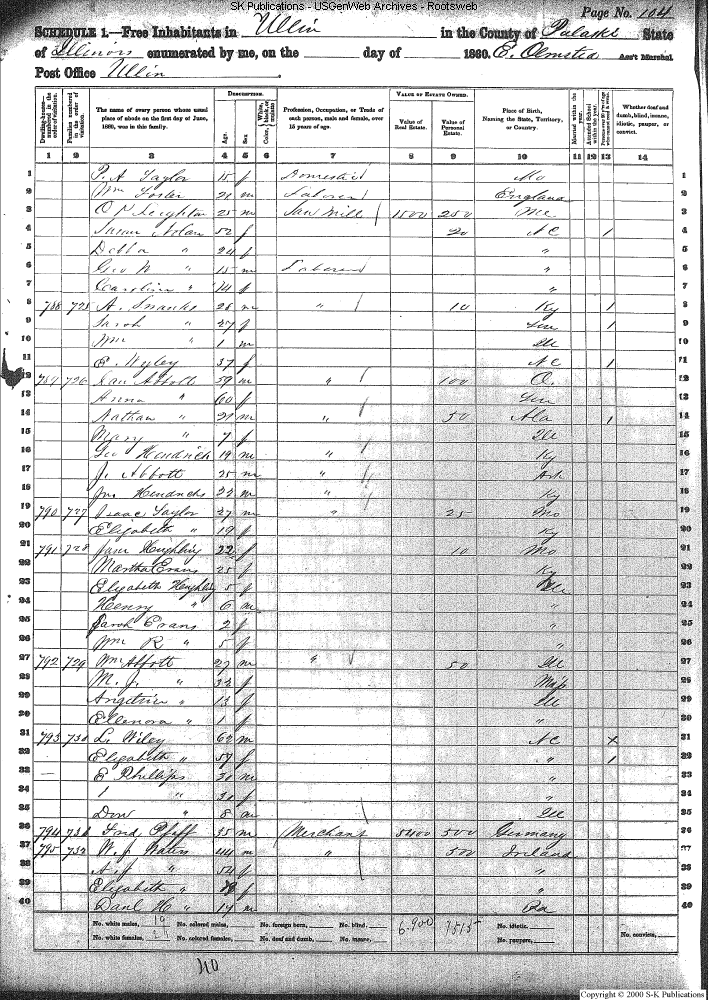 SK Publications - USGenWeb Archives - Rootsweb
Page No. 104
SCHEDULE 1.—Free Inhabitants in Ullin in the County of Pulaski State
of Illinois enumerated by me, on the day of 1860. E. Olmsted Ass't Marshal
Post Office Ullin
Dwelling-houses—numbered in the order of visitation.
Families numbered in the order of visitation.
The name of every person whose usual place of abode on the first day of June, 1860, was in this family.
DESCRIPTION.
Age.
Sex
White, black, or mulatto
Color,
Profession, Occupation, or Trade of each person, male and female, over 15 years of age.
VALUE OF ESTATE OWNED.
Value of Real Estate.
Value of Personal Estate.
Place of Birth, Naming the State, Territory, or Country.
Married within the year.
Attended School within the year.
Whether deaf and dumb, blind, insane, idiotic, pauper, or convict.
1 2 3 4 5 6 7 8 9 10 11 12 13 14
1 P. A Taylor 15 f Domestic Mo 1
2 Wm Foster 21 m Laborer England 2
3 Leighton 25 m Saw Mill 1500 250 Me 3
4 Susan Nolan 52 f 20 NC / 4
5 Della " 24 f " 5
6 Geo W " 15 m Laborer " 6
7 Caroline " 14 f " 7
8 788 725 A. 28 m " 10 Ky / 8
9 Sarah " 27 f Ten / 9
10 Wm " 1 m Ill 10
11 E. Wyley 37 f NC / 11
12 789 726 Abbott 59 m " 100 O. 12
13 Anna " 60 f Ten 13
14 Nathan " 21 m " 50 Ala / 14
15 Mary " 7 f Ill 15
16 Geo Hendrick 19 m " Ky 16
17 J. Abbott 25 m " Ark 17
18 Jno Hendricks 22 m " Ky 18
19 790 727 Isaac Taylor 27 m " 25 Mo 19
20 Elizabeth " 19 f Ky 20
21 791 728 Jane 22 f 10 Mo 21
22 Martha Evans 25 f Ky 22
23 Elizabeth 5 f Ill 23
24 Henny " 6 m " 24
25 Sarah Evans 2 f " 25
26 Wm R " 5 f " 26
27 792 729 Wm Abbott 27 m " 50 Ill 27
28 M. J. " 32 f Miss 28
29 " 13 f Ill 29
30 Ellenora " 1 f " 30
31 793 730 L. Wiley 62 m NC x 31
32 Elizabeth " 59 f " / 32
33 E Phillips 30 m " 33
34 " 30 f " 34
35 " 8 m Ill 35
36 794 731 Fred. Pfaff 35 m Merchant 5400 500 Germany 36
37 795 732 W. J. 44 m " 500 Ireland 37
38 A. J " 54 f " 38
39 Elizabeth " f " 39
40 Danl H. " 14 m Pa 40
No. white males, 19 No. colored males, No. foreign born, No. blind, 6.900 1515 No. idiotic,
No. white females, 21 No. colored females, No. deaf and dumb, No. insane, No. paupers, No. convicts,
40
Copyright © 2000 S-K Publications